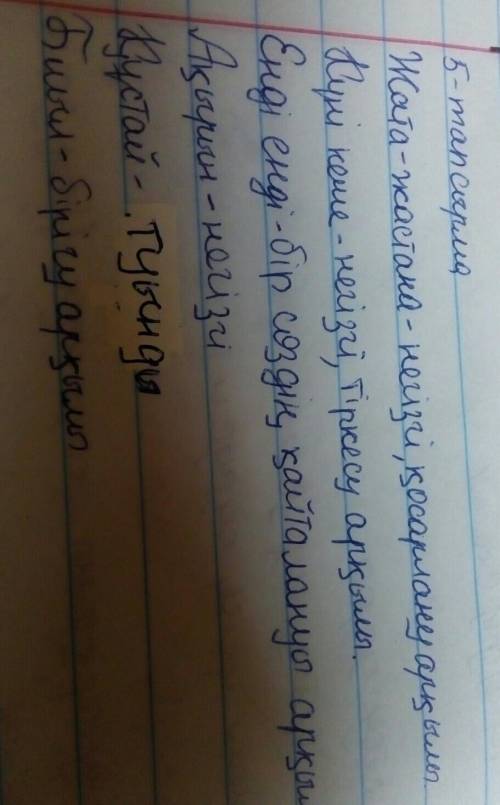 5-тапсырма
Жата-жастана - негізгі, қосарлану арқылы.
Күні кеше - негізгі, тіркесу арқылы.
Енді енді - бір сөздің қайталануы арқыл
Ақырын - негізгі
Құстай - туынды
Биыл - бірігу арқылы